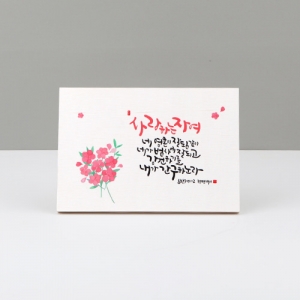 사랑하는 자여
네 영혼이 잘됨같이
네가 범사에 잘되고
강건하기를
내가 간구하노라